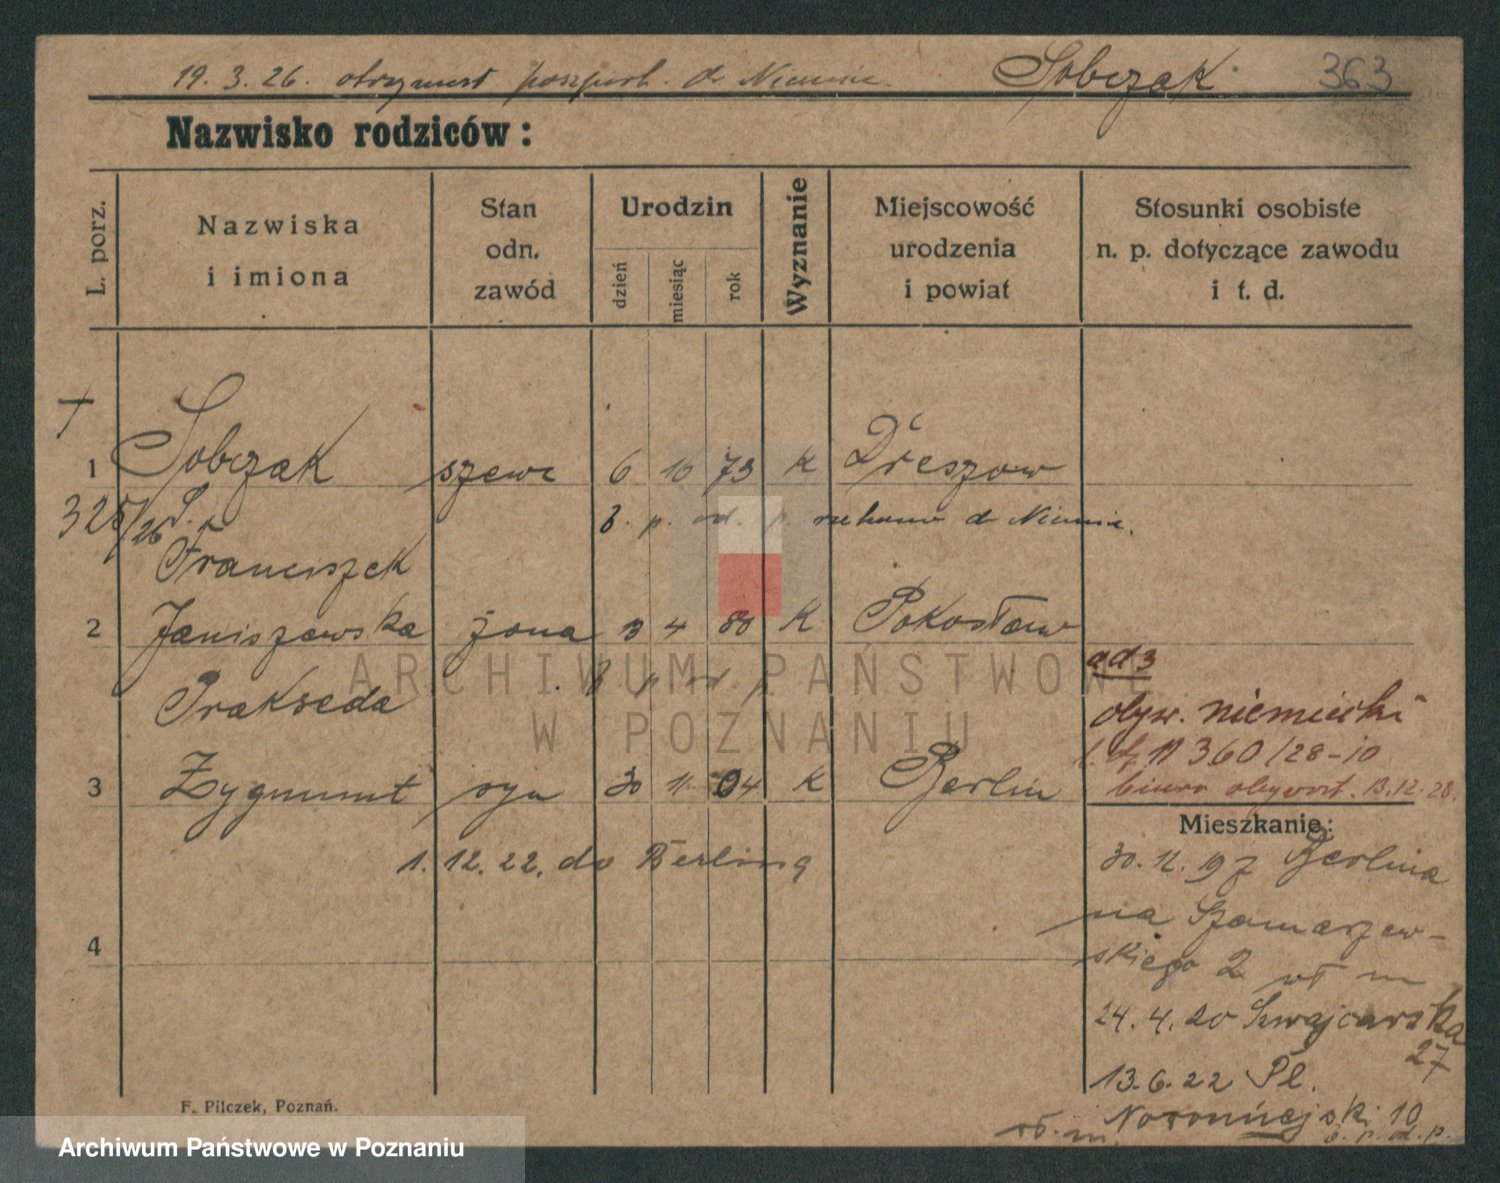 19. 3. 26. otrzymał paszport. do Niemiec Sobczak 363
Nazwisko rodziców:
L. porz.
Nazwiska
i imiona
Stan
odn.
zawód
Urodzin
dzień
miesiąc
rok
Wyznanie
Miejscowość
urodzenia
i powiat
Stosunki osobiste
n. p. dotyczące zawodu
i t. d.
1 Sobczak szewc 6 10 73 K
325/26
Franciszek
p. od. p. do Niemiec.
2 Janiszewska żona 13 4 80 K Pokosław
Prakseda
p. od. p.
ad 3
obyw. niemiecki
360/28-10
biuro obywat. 13.12.28.
3 Zygmunt syn 30 11 04 K Berlin
1. 12. 22. do Berlina
4
Mieszkanie:
30. 12. 19 z Berlina
na Szamarzew-
skiego 2
24. 4. 20 Szwajcarska
27
13. 6. 22 Pl.
Nowomiejski 10
p. od. p.
F. Pilczek, Poznań.
ARCHIWUM PAŃSTWOWE
W POZNANIU
Archiwum Państwowe w Poznaniu